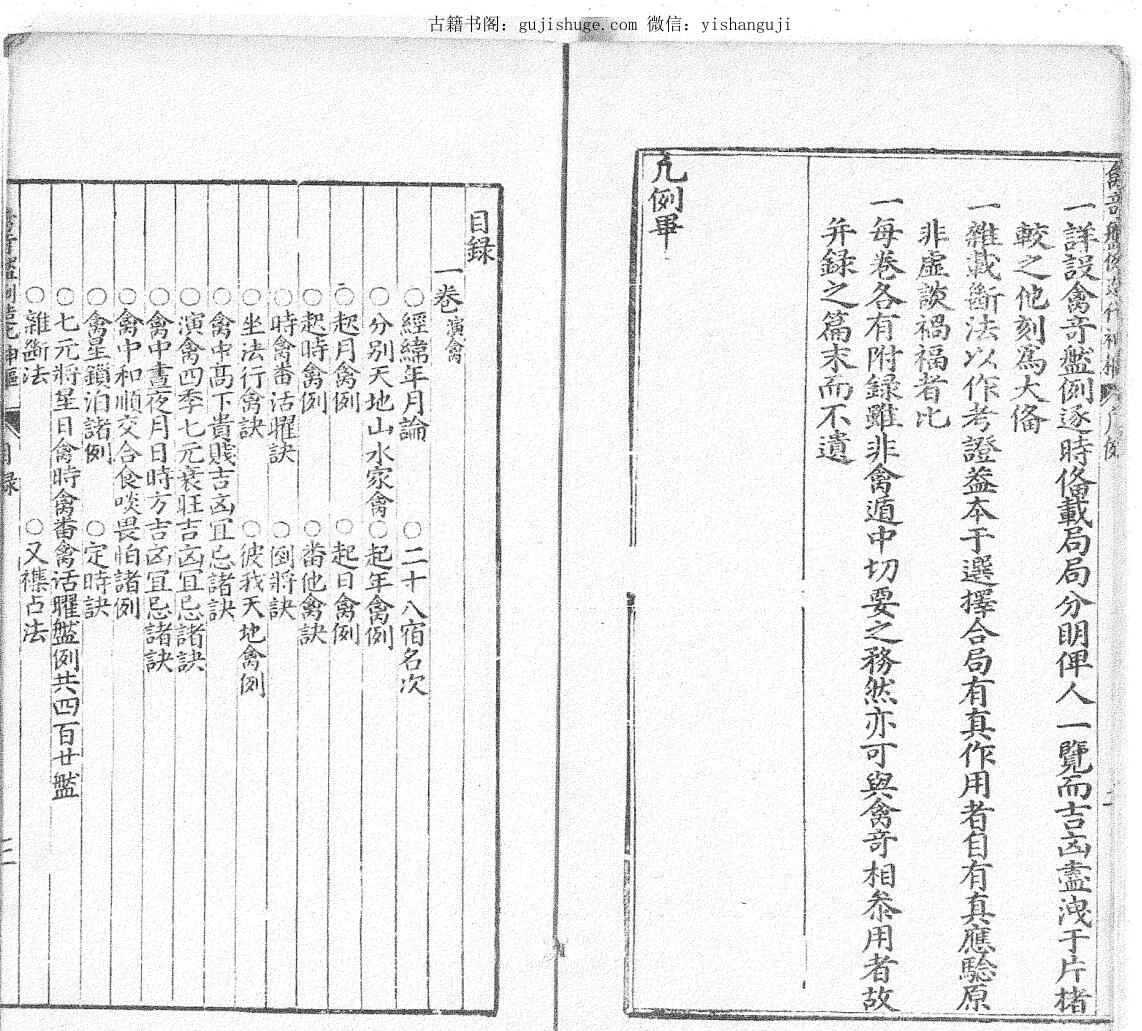 古籍书阁：gujishuge.com 微信：yishanguji
一詳設禽竒盤例逐時俻載局局分明俾人一覽而吉凶盡洩于片楮
較之他刻爲大俻
一雜載斷法以作考證葢本于選擇合局有真作用者自有真應驗原
非虛談禍福者比
一每卷各有附録雖非禽遁中切要之務然亦可與禽竒相叅用者故
并録之篇末而不遺
凡例畢
目録
一卷 演禽
○經緯年月論 ○二十八宿名次
○分别天地山水家禽 ○起年禽例
○起月禽例 ○起日禽例
○起時禽例 ○畨他禽訣
○時禽畨活曜訣 ○倒將訣
○坐法行禽訣 ○彼我天地禽例
○禽中髙下貴賤吉凶冝忌諸訣
○演禽四季七元衰旺吉凶冝忌諸訣
○禽中晝夜月日時方吉凶冝忌諸訣
○禽中和順交合食啖畏怕諸例
○禽星鎖泊諸例 ○定時訣
○七元將星日禽時禽畨禽活曜盤例共四百廿盤
○雜斷法 ○又襍占法
目録